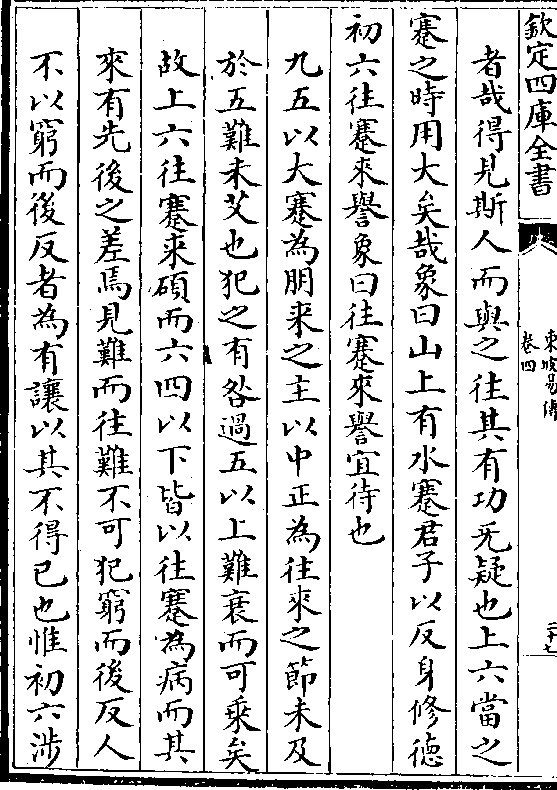 欽定四庫全書
東坡易傳
卷四
二十七
者哉得見斯人而與之往其有功无疑也上六當之
蹇之時用大矣哉象曰山上有水蹇君子以反身修德
初六往蹇來譽象曰往蹇來譽宜待也
九五以大蹇為朋來之主以中正為往來之節未及
於五難未艾也犯之有咎過五以上難衰而可乘矣
故上六往蹇来碩而六四以下皆以往蹇為病而其
來有先後之差焉見難而往難不可犯窮而後反人
不以窮而後反者為有讓以其不得已也惟初六涉